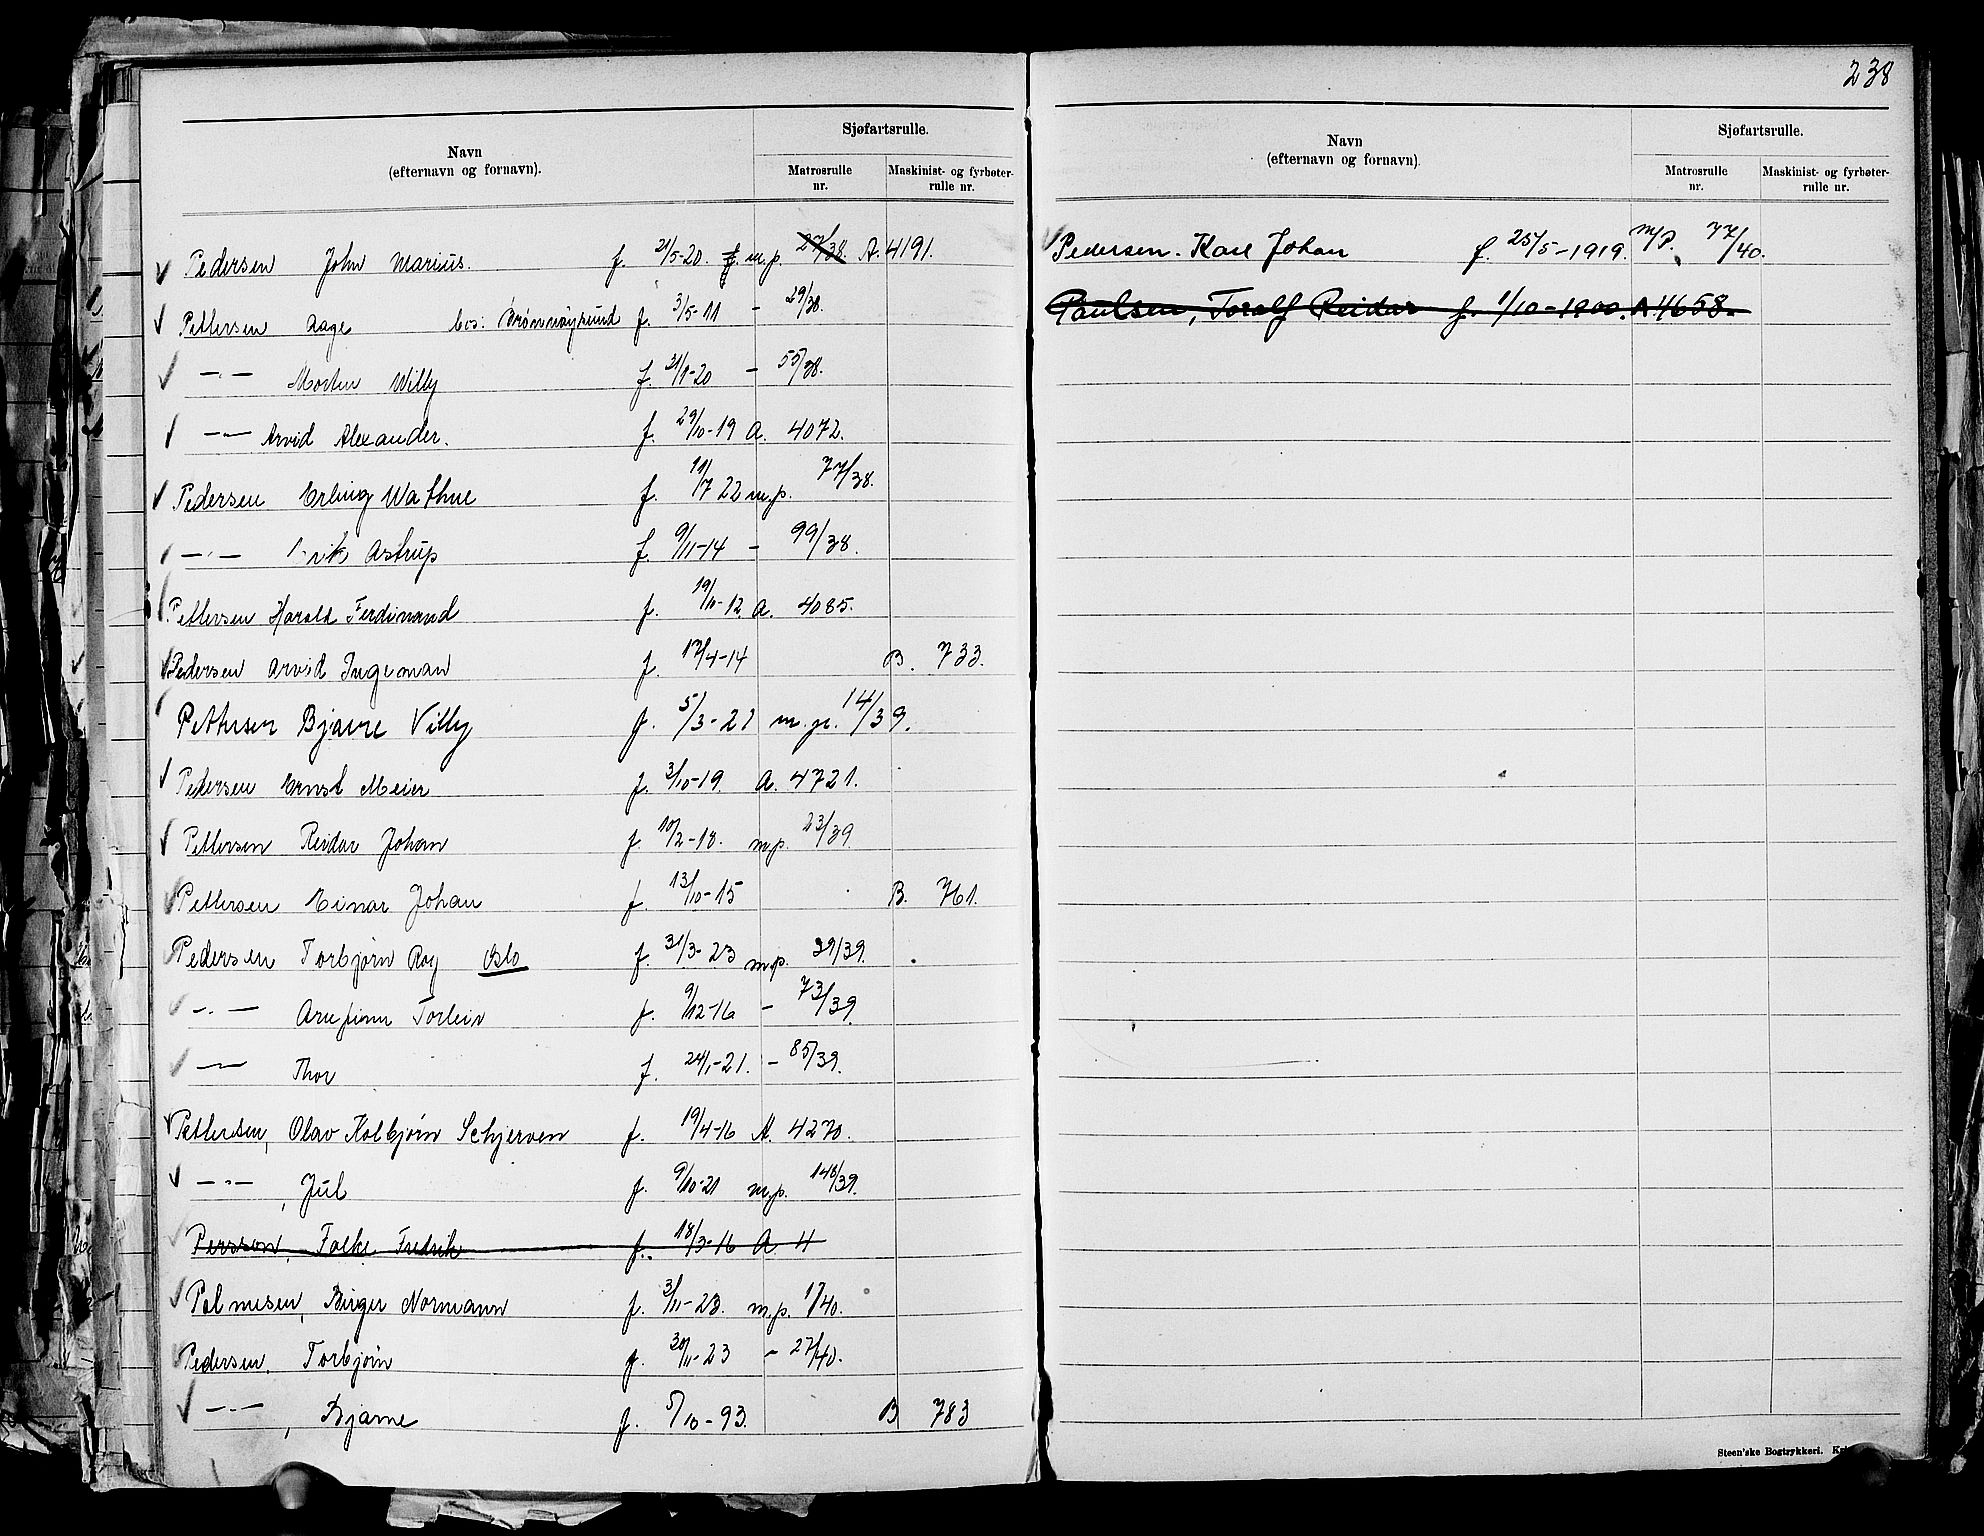 Navn
(efternavn og fornavn).
Sjøfartsrulle.
Matrosrulle nr.
Maskinist- og fyrbøter-rulle nr.
Pedersen John Marius. f. 21/5-20. f. m.p. 27/38. A. 4191.
Pettersen Aage bos: Brønnøysund f. 3/5-11 - 29/38.
—"— Morten Willy f. 31/1-20 - 55/38.
—"— Arvid Alexander. f. 29/10-19 A. 4072.
Pedersen Erling Wathne f. 11/7 22 m.p. 77/38.
—"— Erik Astrup f. 9/11-14 - 99/38.
Pettersen Harald Ferdinand f. 19/10-12 A. 4085.
Pedersen Arvid Ingeman f. 17/4-14 B. 733.
Pettersen Bjarne Villy f. 5/3-21 m.p. 14/39.
Pedersen Ernst Meier f. 3/10-19. A. 4721.
Pettersen Reidar Johan f. 10/2-18. m.p. 23/39
Pettersen Einar Johan f. 13/10-15 B. 761.
Pedersen Torbjørn Roy Oslo f. 31/3-23 m.p. 39/39.
—"— Arnfinn Torleiv f. 9/12-16 - 73/39.
—"— Thor f. 24/1-21. - 85/39.
Pettersen, Olav Kolbjørn Schjerven f. 19/4-16 A. 4270.
—"— , Jul f. 9/10-21 m.p. 148/39.
Persson, Folke Fredrik f. 18/3-16 A. 11
Palmesen, Birger Normann f. 3/11-23. m.p. 17/40.
Pedersen, Torbjørn f. 30/11-23 - 27/40.
—"— , Bjarne f. 5/10-93. B 783
238
Navn
(efternavn og fornavn).
Sjøfartsrulle.
Matrosrulle nr.
Maskinist- og fyrbøter-rulle nr.
Pedersen. Karl Johan f. 25/5-1919. m/p. 77/40.
Paulsen, Toralf Reidar f. 1/10-1900. A 4658.
Steen'ske Bogtrykkeri.